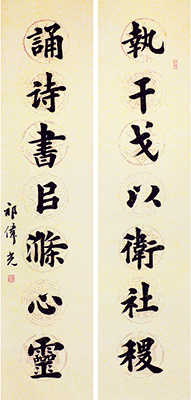 執干戈以衛社稷
誦诗書㠯滌心靈
祁偉光